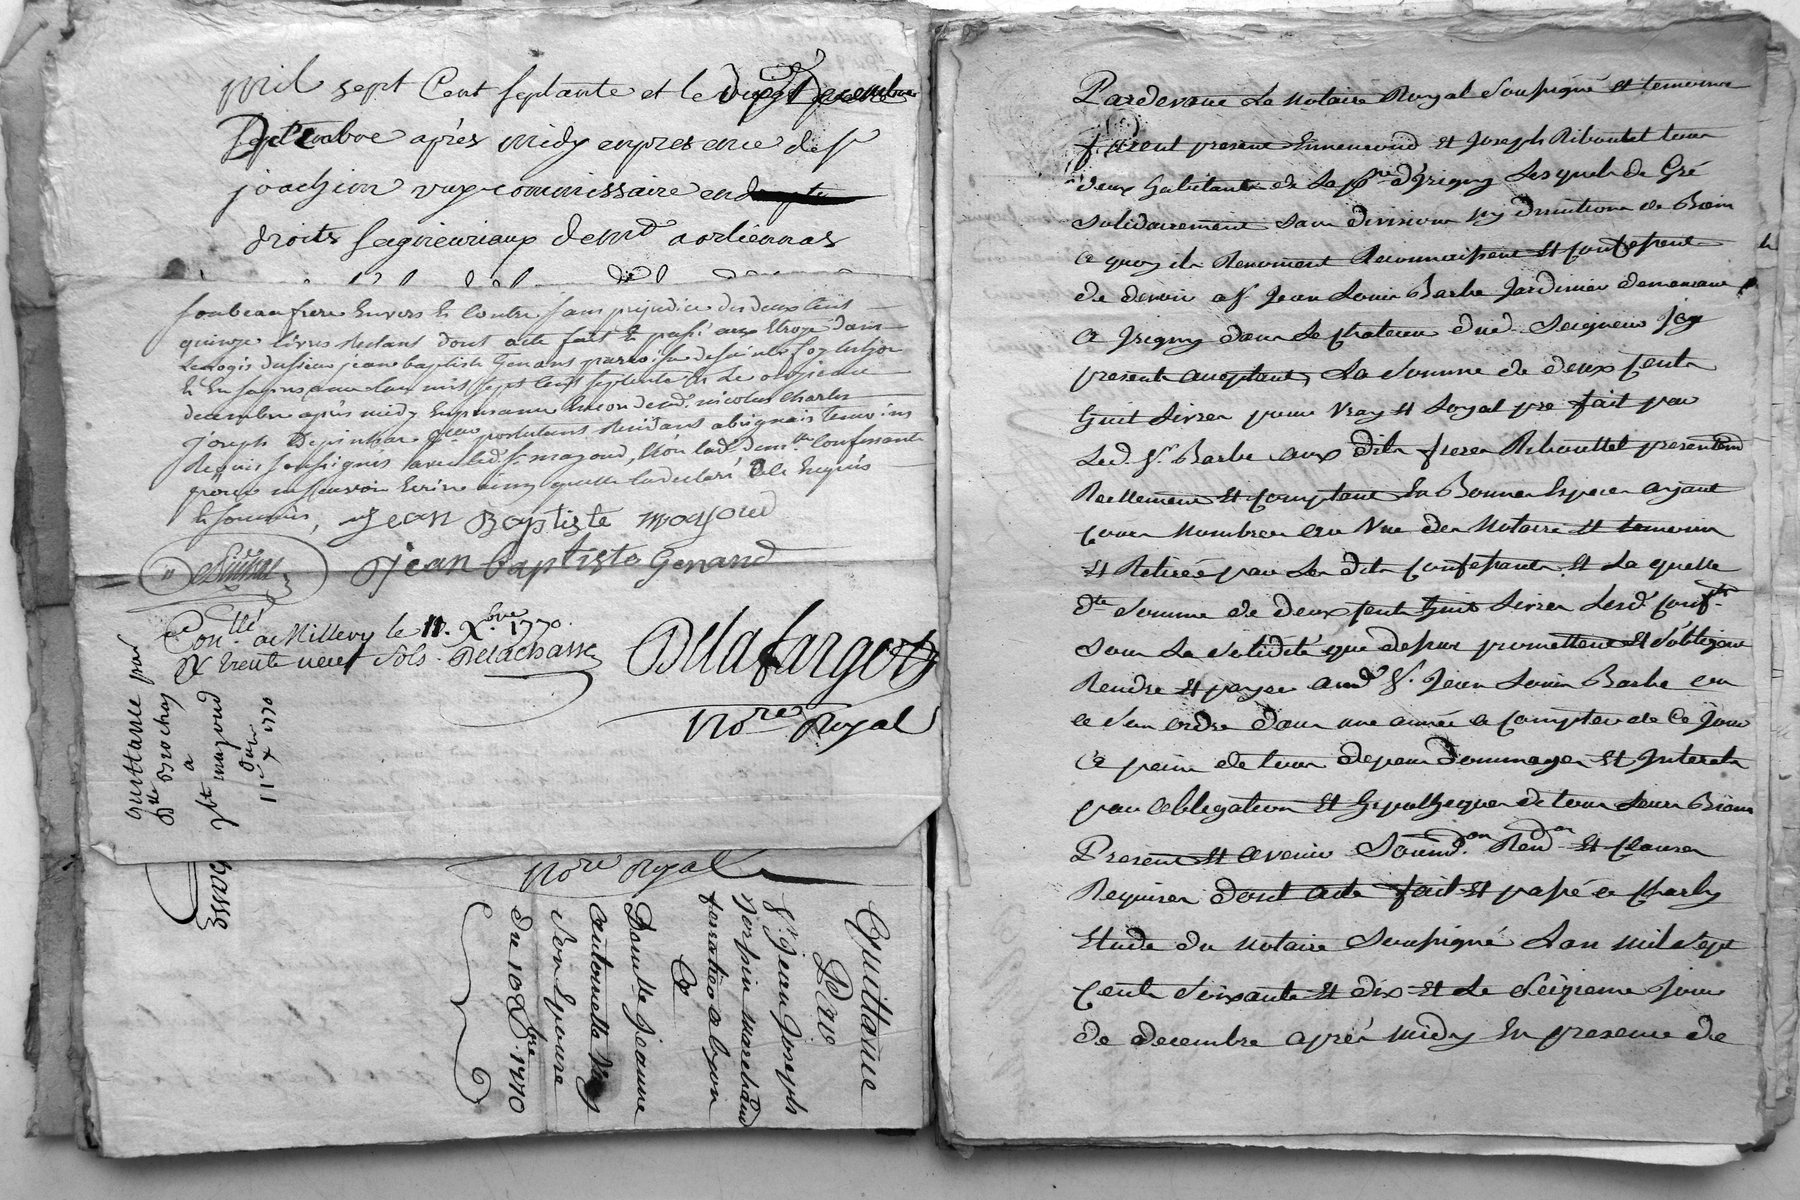 mil sept Cent septante et le
Septembre après midy en presence de sr
joachim commissaire en
droits seigneuriaux de md
son beau frere Envers Et Contre sans prejudice des deux Cent
quinze livres Restant dont acte fait Et passé aux Etroyt dans
Le logis du sieur jean baptiste Genand paroisse de sainte foy les lyon
Et En l'an mil sept Cent septente Et Le onzieme
decembre après midy En presence nicolas charles
Joseph Residans temoins
Requis soussignés avec led. sr mazoud, Non lad. demlle Confessante
pour ne sçavoir Ecrire ainsy quelle la declaré de ce Enquis
Et sommée, Jean Baptiste mazoud
Jean baptiste Genand
Conllé a Millery le 11. Xbre 1770.
R trente neuf sols Delachasse
Delafargett
Nore Royal
Quittance par
Dlle Brochay
a
jbte mazoud
Du
11e X 1770
Nore Royal
Quittance
De
Sr. Jean Joseph
marchand
a Lyon
Demlle jeanne
antoinette
son Epouse
Du 10 Xbre 1770
Pardevant Le Notaire Royal Soussigné et temoins
furent present Ennemond et Joseph Riboulet tous
deux habitants de La psse d'Irigny Lesquels de Gré
Solidairement sans division ny dmition de Bien
a quoy ils Renoncent Reconnaissent et Confessent
de devoir a Sr. Jean Louis Barbe Jardinier demeurant
a Irigny dans Le Chateau dud. Seigneur Icy
present acceptant, La Somme de deux Cents
huit Livres pour vray et Loyal pre fait par
Led. Sr. Barbe aux dits freres Riboullet presentemt
Reellement et Comptant En Bonnes Especes ayant
Cours Nombrees au vue des Notaire et temoins
et Retirée par Les dits Confessants. Et La quelle
dte Somme de deux cent huit Livres Lesd. Confts
Sous La solidité que dessus promettent et s'obligent
Rendre et payer aud. Sr. Jean Louis Barbe ou
a Son ordre dans une année a Compter de Ce Jour
a peine de tous depens Dommages et Interets
par obligation et hypotheques de tous Leurs Biens
Present et avenir Soumd.on Rend.on et clauses
Requises dont acte fait et passé a Charly
Etude du Notaire Soussigné Lan mil Sept
Cents Soixante et dix et Le Seizieme Jour
de decembre après midy En presence de